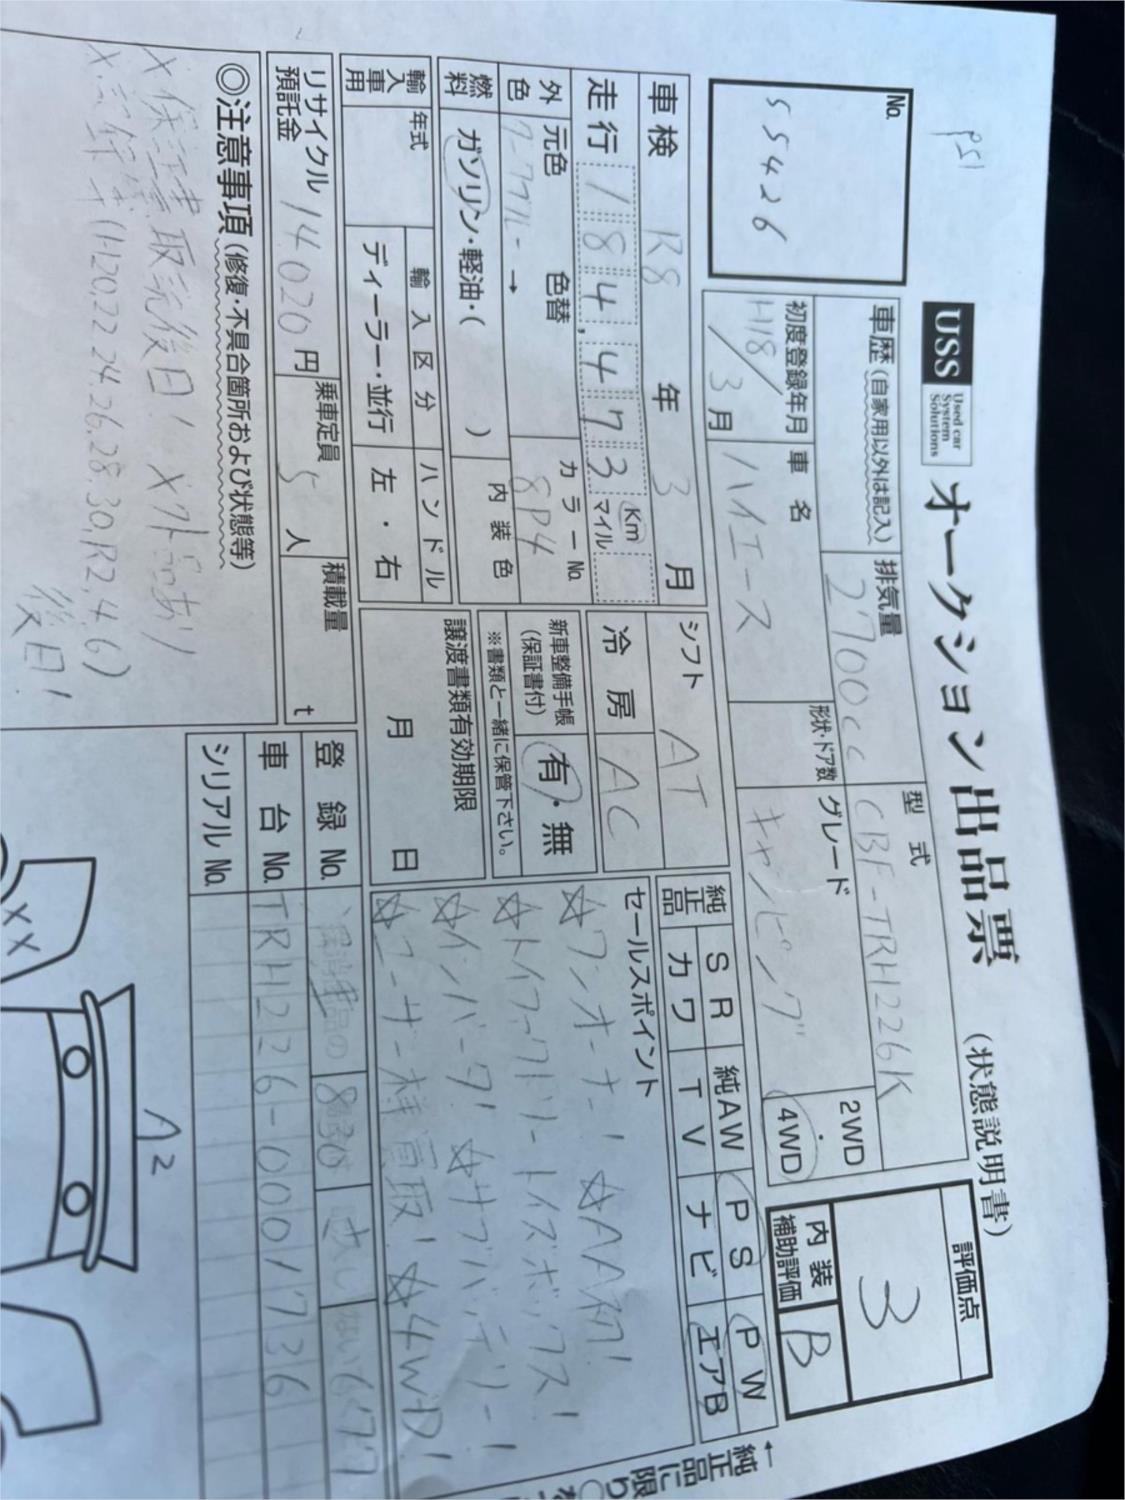 P51
No.
55426
USS
Used car
System
Solutions
オークション出品票
(状態説明書)
車歴(自家用以外は記入)
排気量
2700cc
型式
CBF-TRH226K
初度登録年月
H18/3月
車名
ハイエース
形状・ドア数
グレード
キャンピング
2WD
・
4WD
評価点
3
内装
補助評価
B
車検
R8年3月
シフト
AT
走行
184,473
Km
マイル
冷房
AC
純正品
SR
純AW
PS
PW
カワ
TV
ナビ
エアB
←純正品に限り
外色
元色
色替
→
カラーNo.
8P4
内装色
新車整備手帳
(保証書付)
有・無
※書類と一緒に保管下さい。
セールスポイント
☆ワンオーナー! ☆AA初!
☆トイファクトリートイズボックス!
☆インバーター ☆サブバッテリー!
☆ユーザー様買取! ☆4WD!
燃料
ガソリン・軽油・( )
輸入車用
年式
輸入区分
ディーラー・並行
ハンドル
左・右
譲渡書類有効期限
月 日
リサイクル
預託金
14020円
乗車定員
5人
積載量
t
登録No.
830
さ
車台No.
TRH226-0001736
シリアルNo.
◎注意事項(修復・不具合箇所および状態等)
×保、記、取説後日!
(H20.22.24.26.28.30,R2,4,6)
後日!
XX
A2